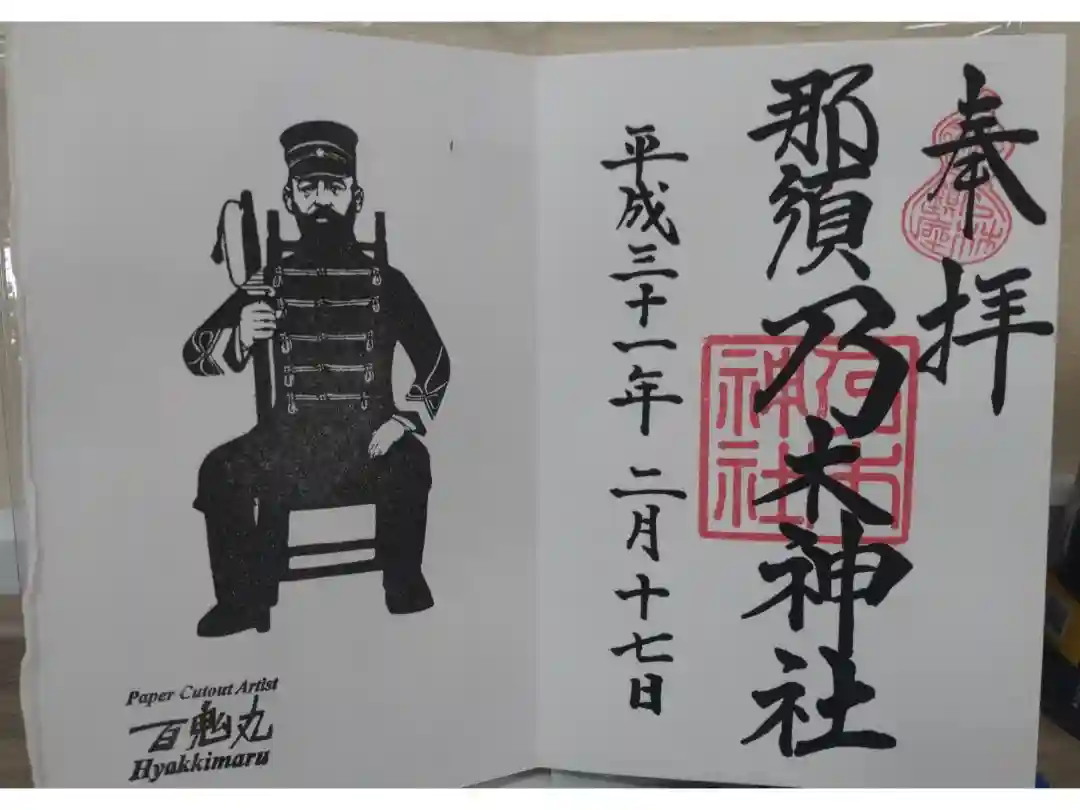 奉拝
那須乃木神社
平成三十一年 二月十七日
乃木
神社
Paper Cutout Artist
百鬼丸
Hyakkimaru